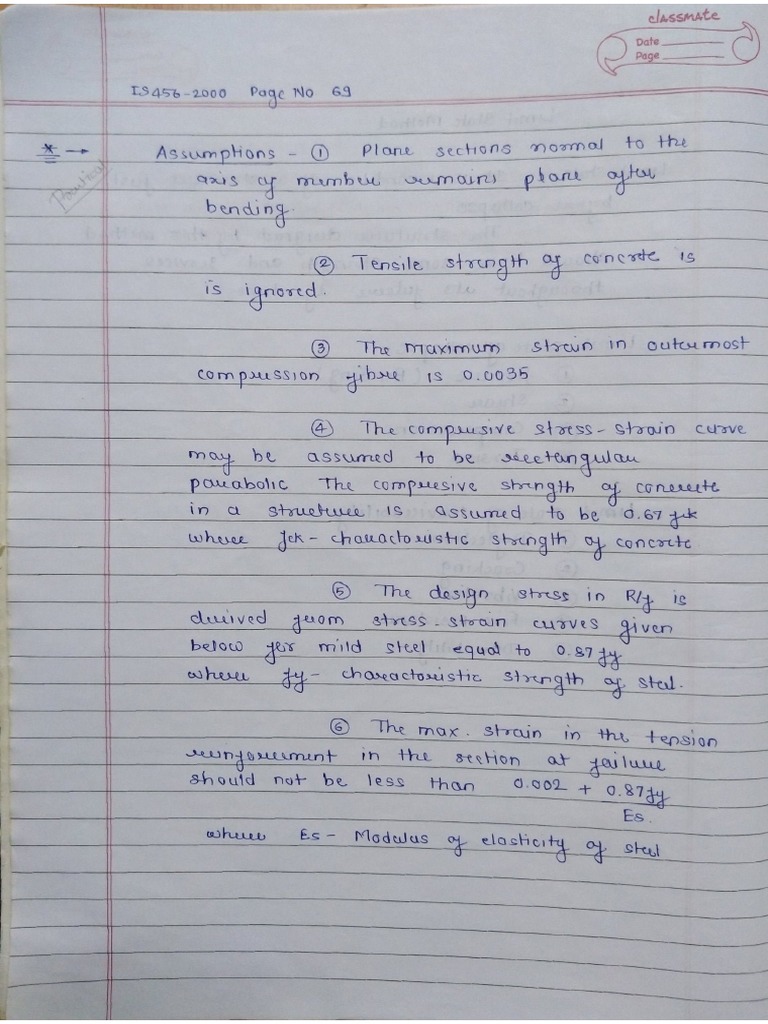 classmate
Date
Page
IS456-2000 Page No 69
* → Assumptions - ① Plane sections normal to the
axis of member remains plane after
bending.
② Tensile strength of concrete is
is ignored.
③ The maximum strain in outermost
compression fibre is 0.0035
④ The compressive stress-strain curve
may be assumed to be rectangular
parabolic The compressive strength of concrete
in a structure is assumed to be 0.67 fck
where fck - characteristic strength of concrete
⑤ The design stress in R/f is
derived from stress-strain curves given
below for mild steel equal to 0.87 fy
where fy - characteristic strength of steel.
⑥ The max. strain in the tension
reinforcement in the section at failure
should not be less than 0.002 + 0.87fy
Es.
where Es - Modulus of elasticity of steel